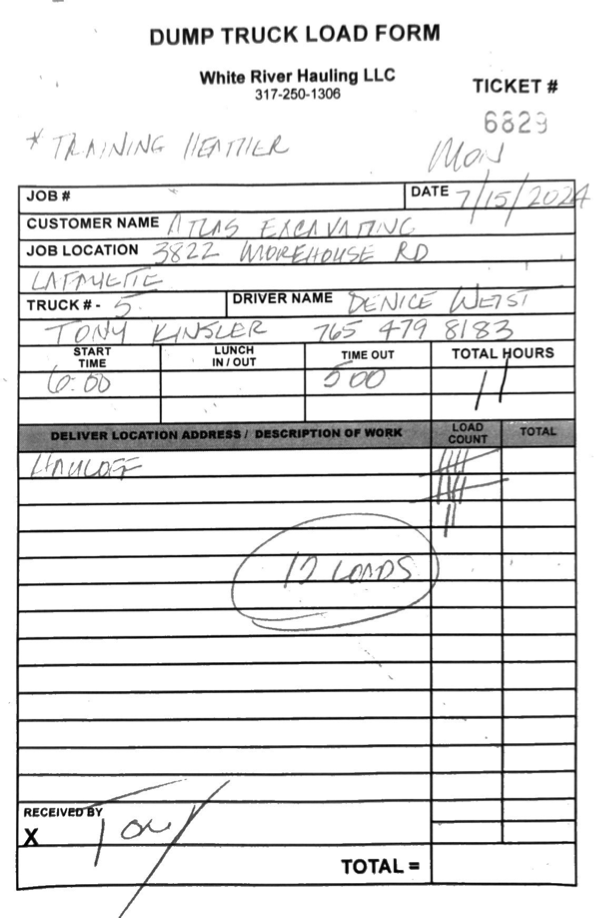 DUMP TRUCK LOAD FORM
White River Hauling LLC
317-250-1306
TICKET #
6829
* TRAINING HEATHER
MON
JOB #
DATE 7/15/2024
CUSTOMER NAME ATLAS EXCAVATING
JOB LOCATION 3822 MOREHOUSE RD
LAFAYETTE
TRUCK # - 5 DRIVER NAME DENICE WEIST
TONY KINSLER 765 479 8183
START TIME LUNCH IN / OUT TIME OUT TOTAL HOURS
6:00 500 11
DELIVER LOCATION ADDRESS / DESCRIPTION OF WORK LOAD COUNT TOTAL
HAULOFF
12 LOADS
RECEIVED BY
X Tony
TOTAL =